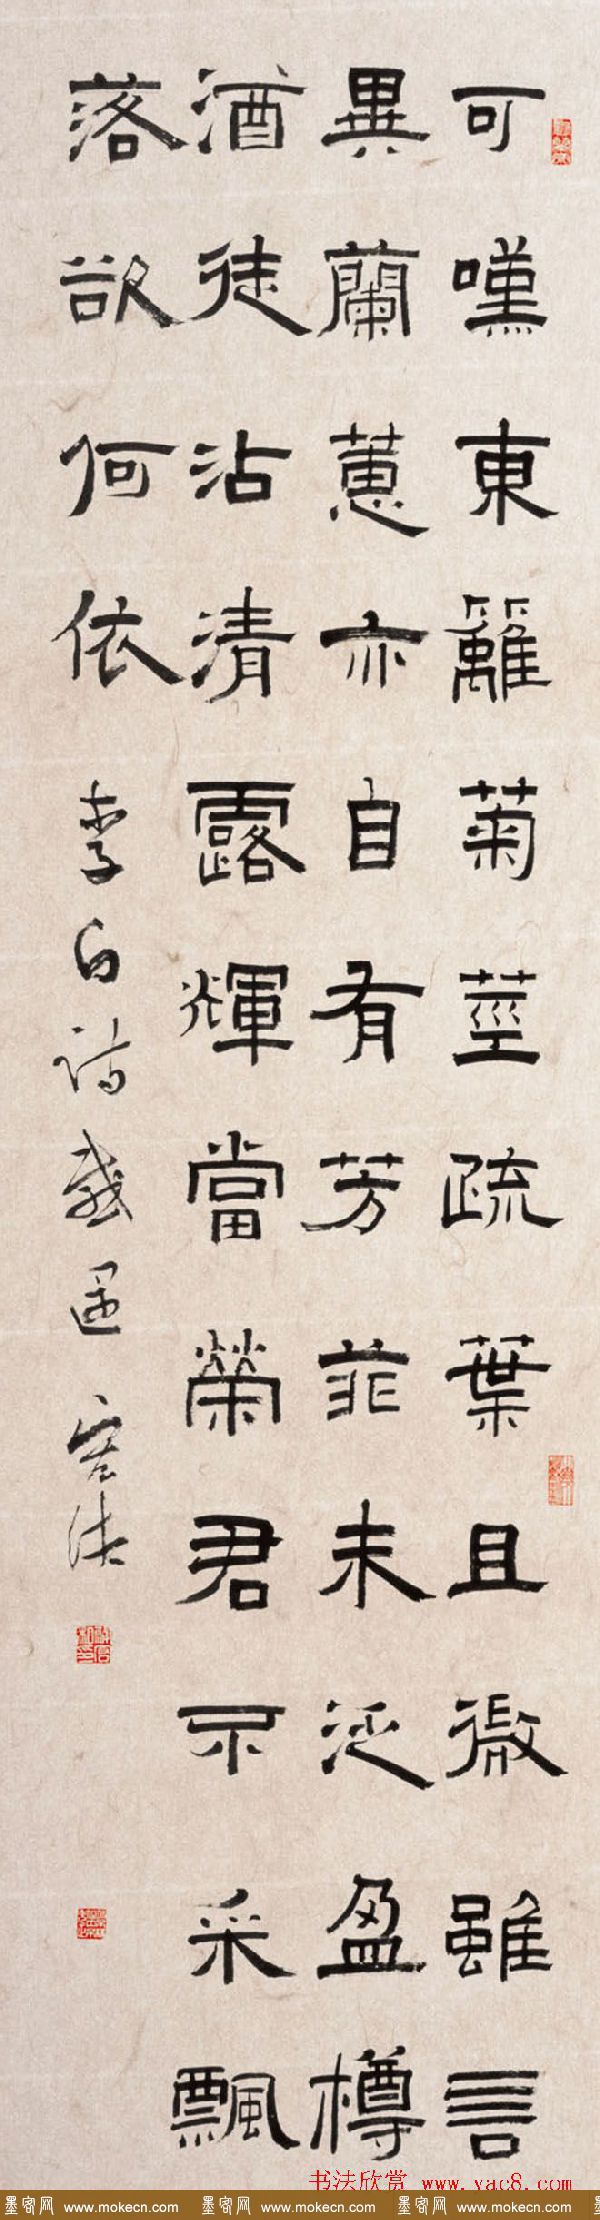 可嘆東籬菊莖疏葉且微雖言
異蘭蕙亦自有芳菲未泛盈樽
酒徒沾清露輝當榮君不采飄
落欲何依 李白詩感遇
书法欣赏 www.yac8.com
墨客网 www.mokecn.com 墨客网 www.mokecn.com 墨客网 www.mokecn.com